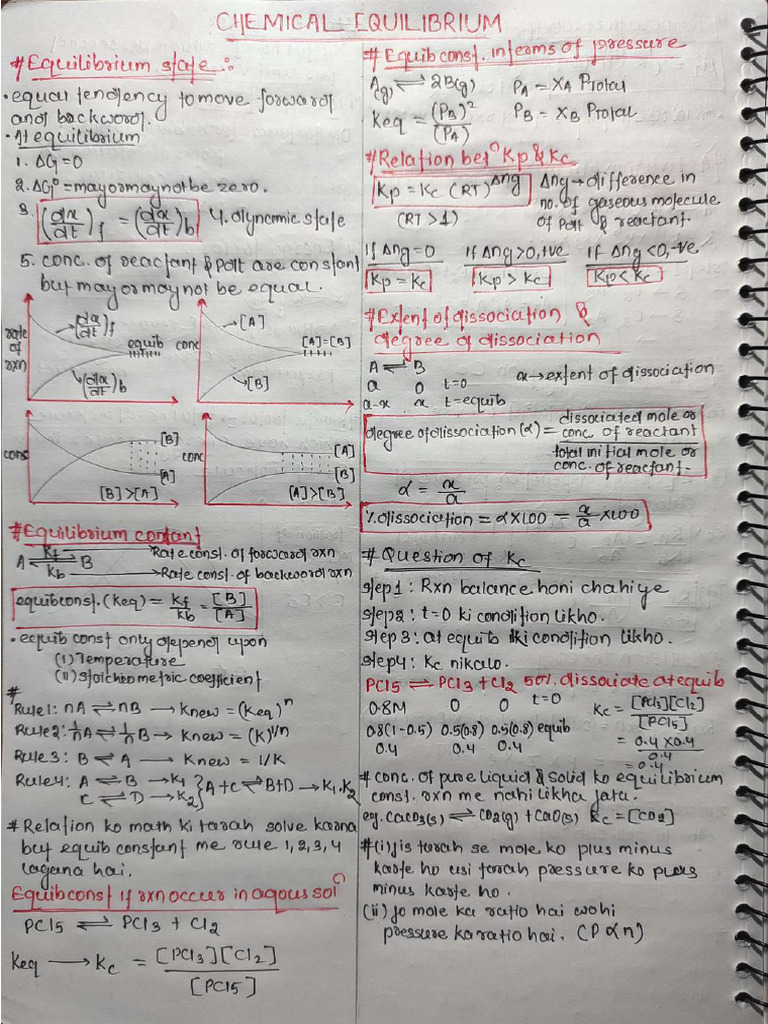 CHEMICAL EQUILIBRIUM
#Equilibrium state :-
•equal tendency to move forward
and backword.
•At equilibrium
1. ΔG=0
2. ΔG°=may or may not be zero.
3. (dx/dt)f = (dx/dt)b 4. dynamic state
5. conc. of reactant & pdt are constant
but may or may not be equal.
rate of rxn
(dx/dt)f
equib
(dx/dt)b
conc
[A]
[A]=[B]
[B]
cons
[B]
[A]
[B]>[A]
conc
[A]
[B]
[A]>[B]
#Equilibrium contant
A ⇌ B
Kf → Rate const. of forward rxn
Kb → Rate const. of backword rxn
equib const. (Keq) = Kf/Kb = [B]/[A]
• equib const only depend upon
(i) Temperature
(ii) stoichiometric coefficient
#
Rule1: nA ⇌ nB → Knew = (Keq)^n
Rule2: 1/n A ⇌ 1/n B → Knew = (K)^1/n
Rule 3: B ⇌ A → Knew = 1/K
Rule4: A ⇌ B → K1
C ⇌ D → K2 } A+C ⇌ B+D → K1.K2
# Relation ko math ki tarah solve karna
but equib constant me rule 1, 2, 3, 4
lagana hai.
Equib const if rxn occur in aqous sol^n
PCl5 ⇌ PCl3 + Cl2
Keq → Kc = [PCl3][Cl2]/[PCl5]
# Equib const. interms of pressure
A(g) ⇌ 2B(g) PA = XA PTotal
Keq = (PB)²/(PA) PB = XB PTotal
#Relation bet^n Kp & Kc
Kp = Kc (RT)^Δng Δng → difference in
no. of gaseous molecule
(RT >1) of pdt & reactant.
if Δng=0 if Δng>0,+ve if Δng<0,-ve
Kp = Kc Kp > Kc Kp < Kc
#Extent of dissociation &
degree of dissociation
A ⇌ B
a 0 t=0 x→extent of dissociation
a-x x t=equib
degree of dissociation (α) = dissociated mole or conc. of reactant / total initial mole or conc. of reactant.
α = x/a
% dissociation = α×100 = x/a ×100
# Question of Kc
step1: Rxn balance honi chahiye
step2: t=0 ki condition likho.
step 3: at equib ki condition likho.
step4: Kc nikalo.
PCl5 ⇌ PCl3 + Cl2 50% dissociate at equib
0.8M 0 0 t=0 Kc = [PCl3][Cl2]/[PCl5]
0.8(1-0.5) 0.5(0.8) 0.5(0.8) equib
0.4 0.4 0.4 = 0.4×0.4/0.4
= 0.4
# conc. of pure liquid & solid ko equilibrium
const. rxn me nahi likha jata.
eg. CaCO3(s) ⇌ CO2(g) + CaO(s) Kc = [CO2]
#(i) Jis tarah se mole ko plus minus
karte ho usi tarah pressure ko plus
minus karte ho.
(ii) Jo mole ka ratio hai wohi
pressure ka ratio hai. (P ∝ n)